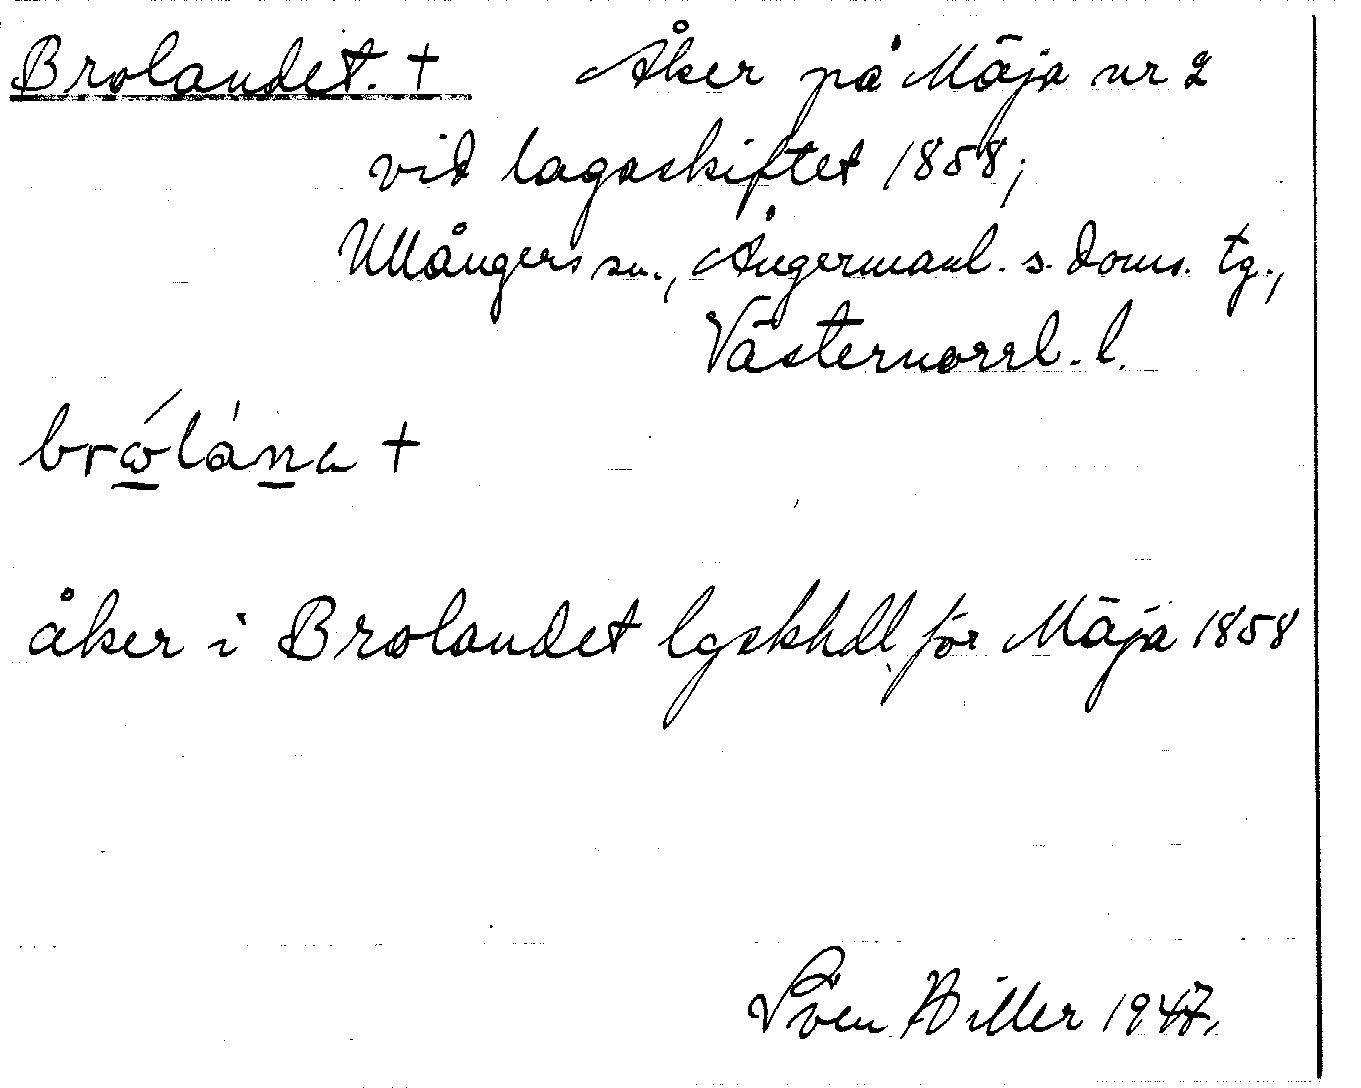 Brolandet. + Åker på Mäja nr 2
vid lagaskiftet 1858,
Ullångers sn., Ångermanl. s. doms. tg.,
Västernorrl. l.
brólána +
åker i Brolandet lgskhdl för Mäja 1858
Sven Hiller 1947.